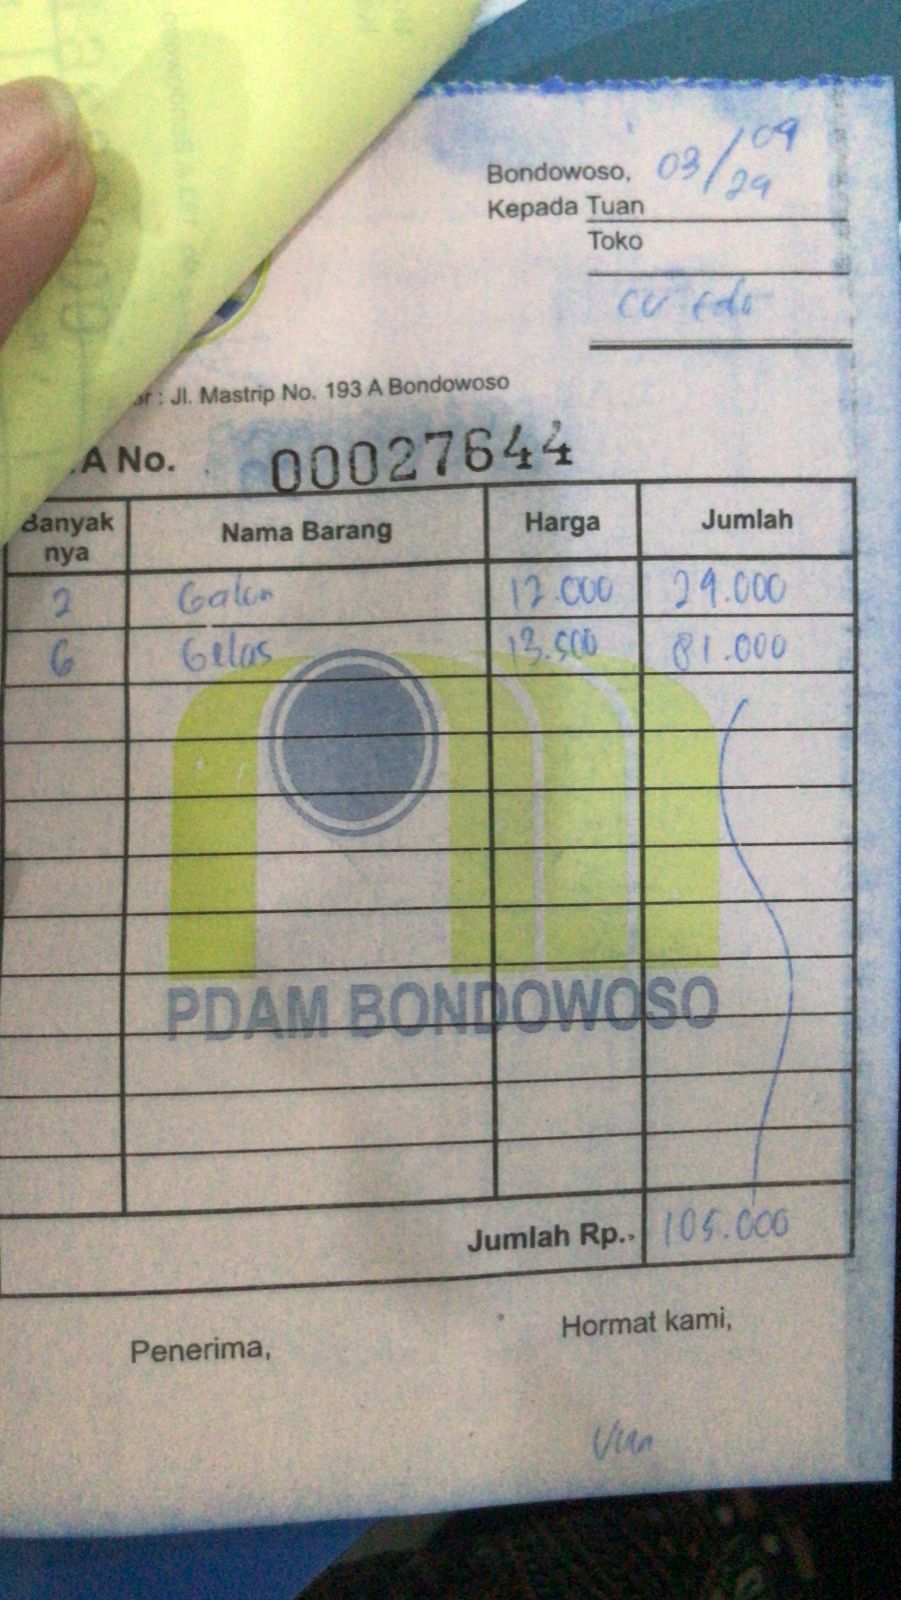 Bondowoso, 03/09
24
Kepada Tuan
Toko
CV Edo
: Jl. Mastrip No. 193 A Bondowoso
A No. 00027644
Banyak nya Nama Barang Harga Jumlah
2 Galon 12.000 24.000
6 Gelas 13.500 81.000
PDAM BONDOWOSO
Jumlah Rp. 105.000
Penerima, Hormat kami,